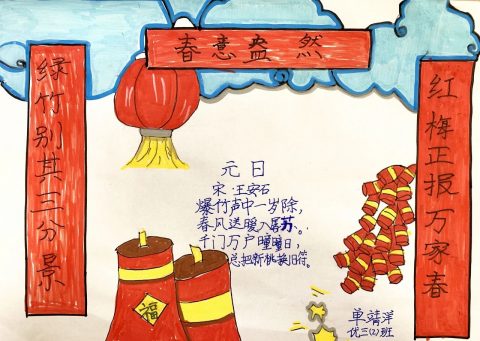 春意盎然
红梅正报万家春
绿竹别其三分景
元日
宋·王安石
爆竹声中一岁除，
春风送暖入屠苏。
千门万户曈曈日，
总把新桃换旧符。
福
单靖洋
优三(2)班